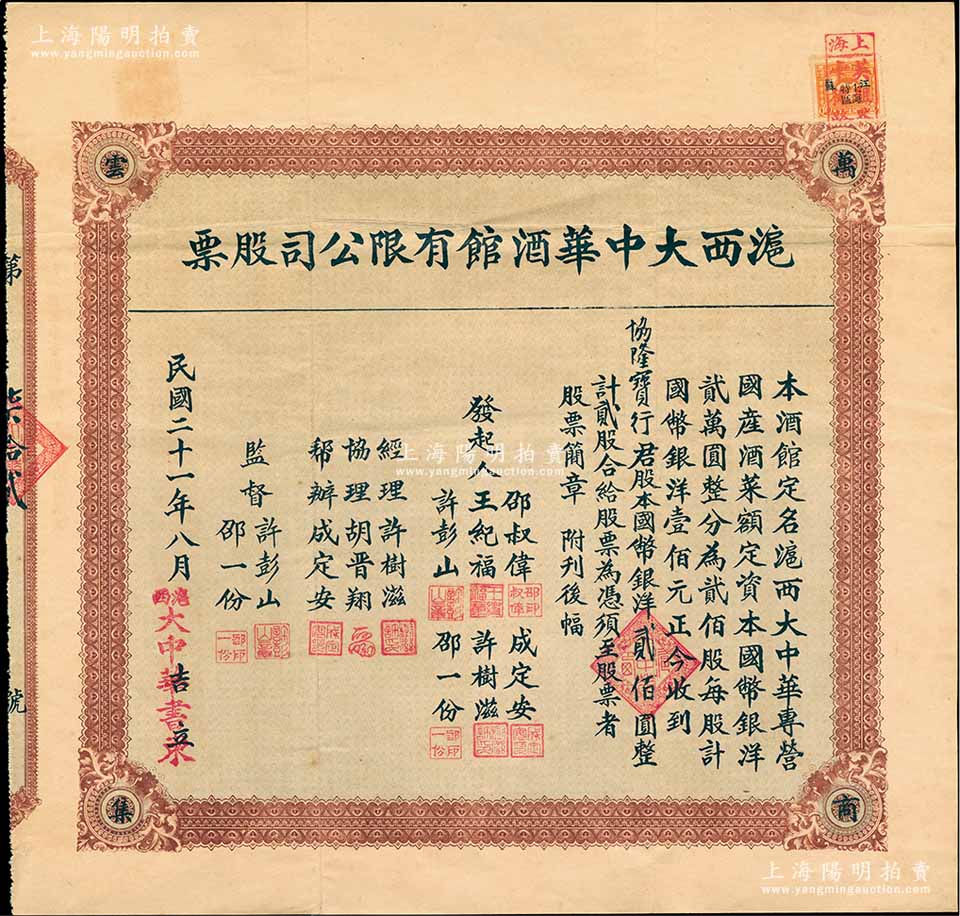 上海陽明拍賣
www.yangmingauction.com
海上
江蘇
萬商雲集
滬西大中華酒館有限公司股票
本酒館定名滬西大中華專營
國産酒菜額定資本國幣銀洋
貳萬圓整分為貳佰股每股計
國幣銀洋壹佰元正今收到
協隆寶行君股本國幣銀洋貳佰圓整
計貳股合給股票為憑須至股票者
股票簡章 附刊後幅
邵叔偉 成定安
發起人王紀福 許樹滋
許彭山 邵一份
經理許樹滋
協理胡晋翔
幇辦成定安
監督許彭山
邵一份
民國二十一年八月 吉立
滬西大中華書柬
第 柒拾貳 號
上海陽明拍賣
www.yangmingauction.com
上海陽明拍賣
www.yangmingauction.com